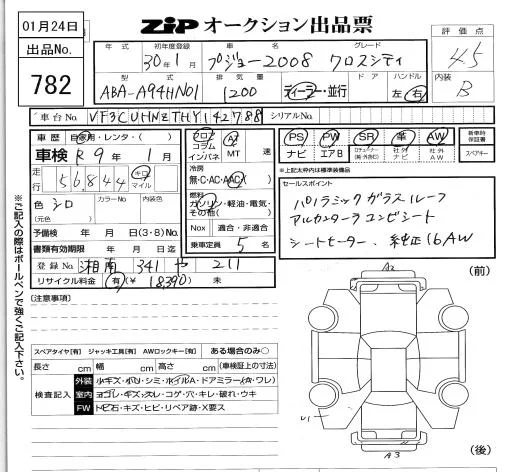 01月24日
ZiP オークション出品票
出品No.
782
年式 初年度登録 車名 グレード
30年1月 プジョー2008 クロスシティ
評価点
4.5
型式 排気量 ドア ハンドル
ABA-A94HN01 1200 ディーラー・並行 左・右
内装
B
車台No. VF3CUHNZTHY142788 シリアルNo.
車歴 自家用・レンタ・( )
車検 R9年1月
走行 56,844 キロ マイル
色 シロ カラーNo. 内装色
(元色 )
予備検 年 月 日(3・8)No.
書類有効期限 年 月 日迄
登録No. 湘南 341 や 211
リサイクル料金 有(¥ 18,390 ) 未
フロア コラム インパネ
AT MT 速
冷房
無・C・AC・AAC
燃料
ガソリン・軽油・電気・その他( )
Nox 適合・非適合
乗車定員 5 名
PS PW SR 革 AW
ナビ エアB 社外ナビ 社外AW
新車時保証書
スペアキー
※上記太枠内は標準装備品
セールスポイント
パノラミックガラスルーフ
アルカンターラコンビシート
シートヒーター、純正16AW
【注意事項】
※ご記入の際はボールペンで強くご記入下さい。
スペアタイヤ[有] ジャッキ工具[有] AWロックキー[有] ある場合のみ○
長さ cm 幅 cm 高さ cm (車検証上の寸法)
検査記入
外装 小キズ・凹リ・シミ・ホイルA・ドアミラー(A・ワレ)
室内 ヨゴレ・キズ・スレ・コゲ・穴・キレ・破れ・ウキ
FW トビ石・キズ・ヒビ・リペア跡・X要ス
A2
(前)
U1
A3
(後)